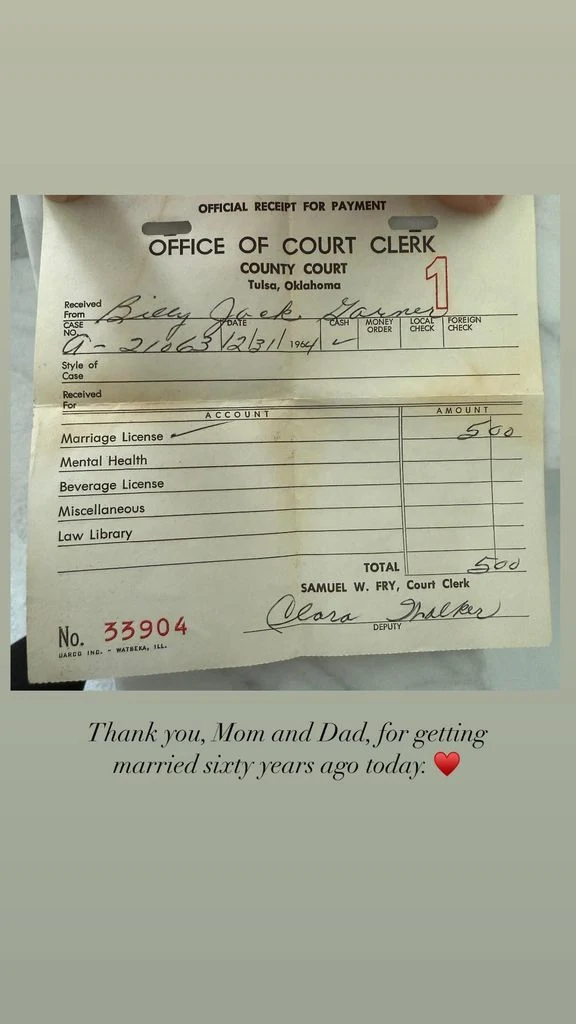 OFFICIAL RECEIPT FOR PAYMENT
OFFICE OF COURT CLERK
COUNTY COURT
Tulsa, Oklahoma
1
Received From Billy Jack Garner
CASE NO. A-21063 DATE 12/31/1964 CASH ✓ MONEY ORDER LOCAL CHECK FOREIGN CHECK
Style of Case
Received For
ACCOUNT AMOUNT
Marriage License ✓ 5 00
Mental Health
Beverage License
Miscellaneous
Law Library
TOTAL 5 00
SAMUEL W. FRY, Court Clerk
Clara Walker
DEPUTY
No. 33904
UARCO INC. - WATSEKA, ILL.
Thank you, Mom and Dad, for getting
married sixty years ago today. ♥️